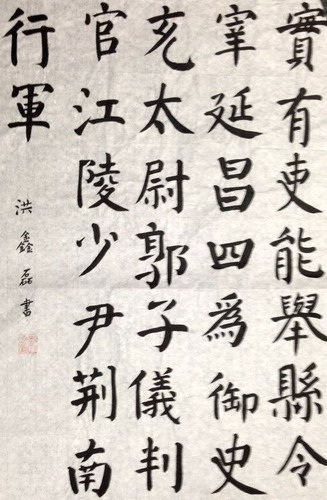 實有吏能舉縣令
宰延昌四為御史
充太尉郭子儀判
官江陵少尹荆南
行軍
洪鑫磊書